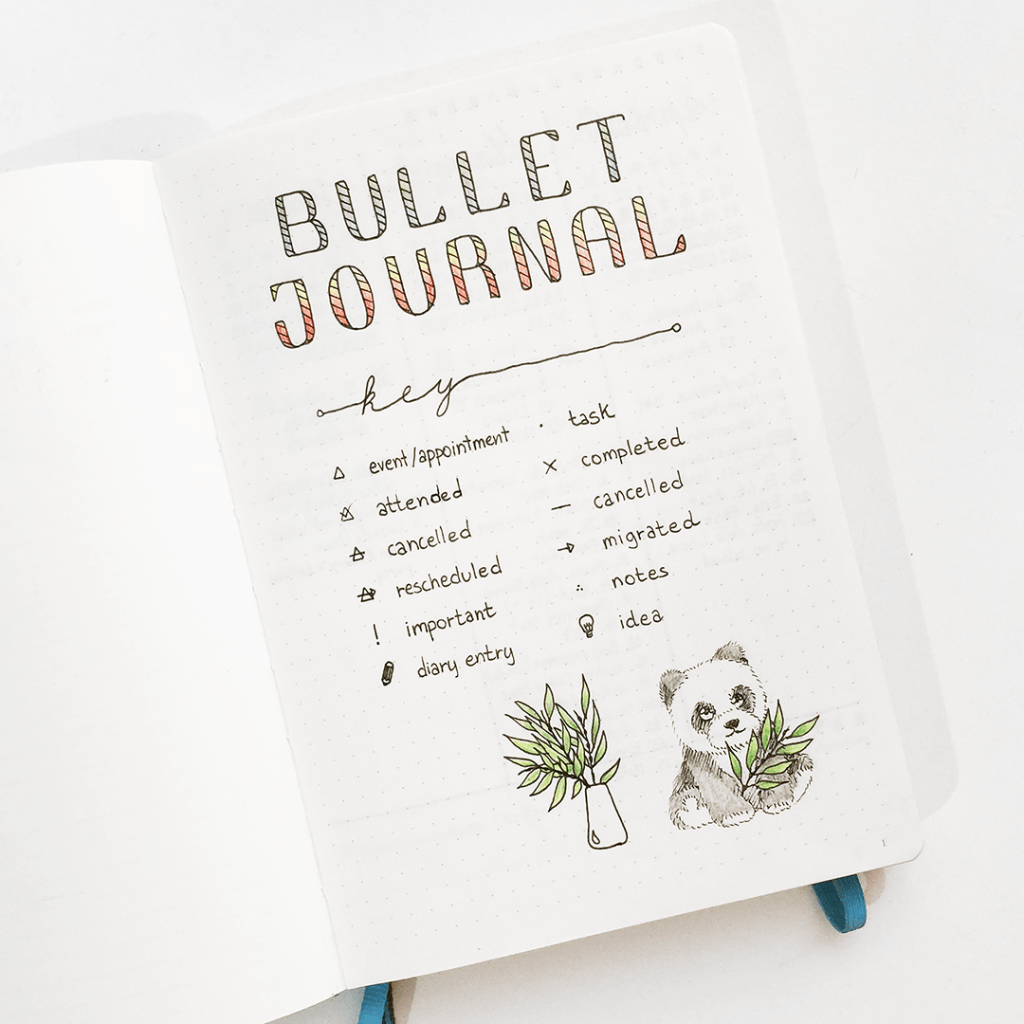 BULLET
JOURNAL
key
event/appointment
attended
cancelled
rescheduled
! important
diary entry
· task
× completed
— cancelled
→ migrated
∴ notes
idea
1